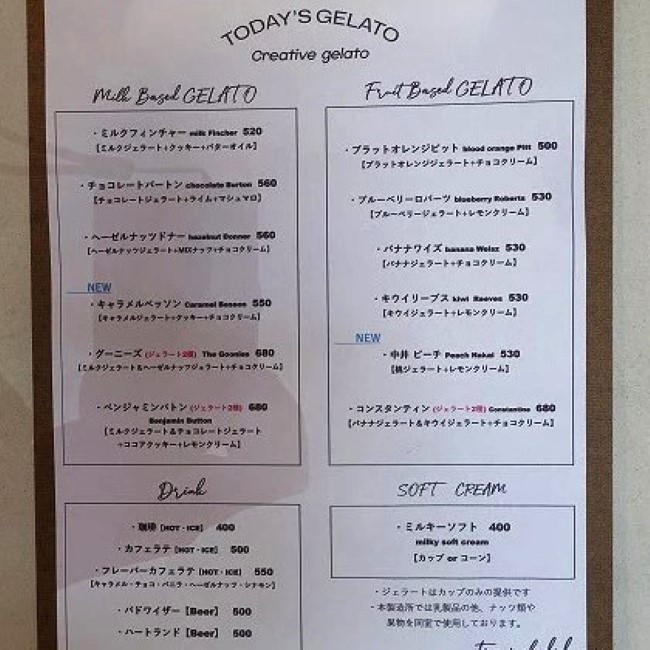 TODAY'S GELATO
Creative gelato
Milk Based GELATO
・ミルクフィンチャー milk Fincher 520
【ミルクジェラート+クッキー+バターオイル】
・チョコレートバートン chocolate Burton 560
【チョコレートジェラート+ライム+マシュマロ】
・ヘーゼルナッツドナー hazelnut Donner 560
【ヘーゼルナッツジェラート+MIXナッツ+チョコクリーム】
NEW
・キャラメルベッソン Caramel Besson 550
【キャラメルジェラート+クッキー+チョコクリーム】
・グーニーズ (ジェラート2種) The Goonies 680
【ミルクジェラート&ヘーゼルナッツジェラート+チョコクリーム】
・ベンジャミンバトン (ジェラート2種) 680
Benjamin Button
【ミルクジェラート&チョコレートジェラート
+ココアクッキー+レモンクリーム】
Fruit Based GELATO
・ブラットオレンジピット blood orange Pitt 500
【ブラットオレンジジェラート+チョコクリーム】
・ブルーベリーロバーツ blueberry Roberts 530
【ブルーベリージェラート+レモンクリーム】
・バナナワイズ banana Weisz 530
【バナナジェラート+チョコクリーム】
・キウイリーブス kiwi Reeves 530
【キウイジェラート+レモンクリーム】
NEW
・中井 ピーチ Peach Nakai 530
【桃ジェラート+レモンクリーム】
・コンスタンティン (ジェラート2種) Constantine 680
【バナナジェラート&キウイジェラート+チョコクリーム】
Drink
・珈琲 [HOT・ICE] 400
・カフェラテ [HOT・ICE] 500
・フレーバーカフェラテ [HOT・ICE] 550
【キャラメル・チョコ・バニラ・ヘーゼルナッツ・シナモン】
・バドワイザー【Beer】 500
・ハートランド【Beer】 500
SOFT CREAM
・ミルキーソフト 400
milky soft cream
【カップ or コーン】
・ジェラートはカップのみの提供です
・本製造所では乳製品の他、ナッツ類や
果物を同室で使用しております。